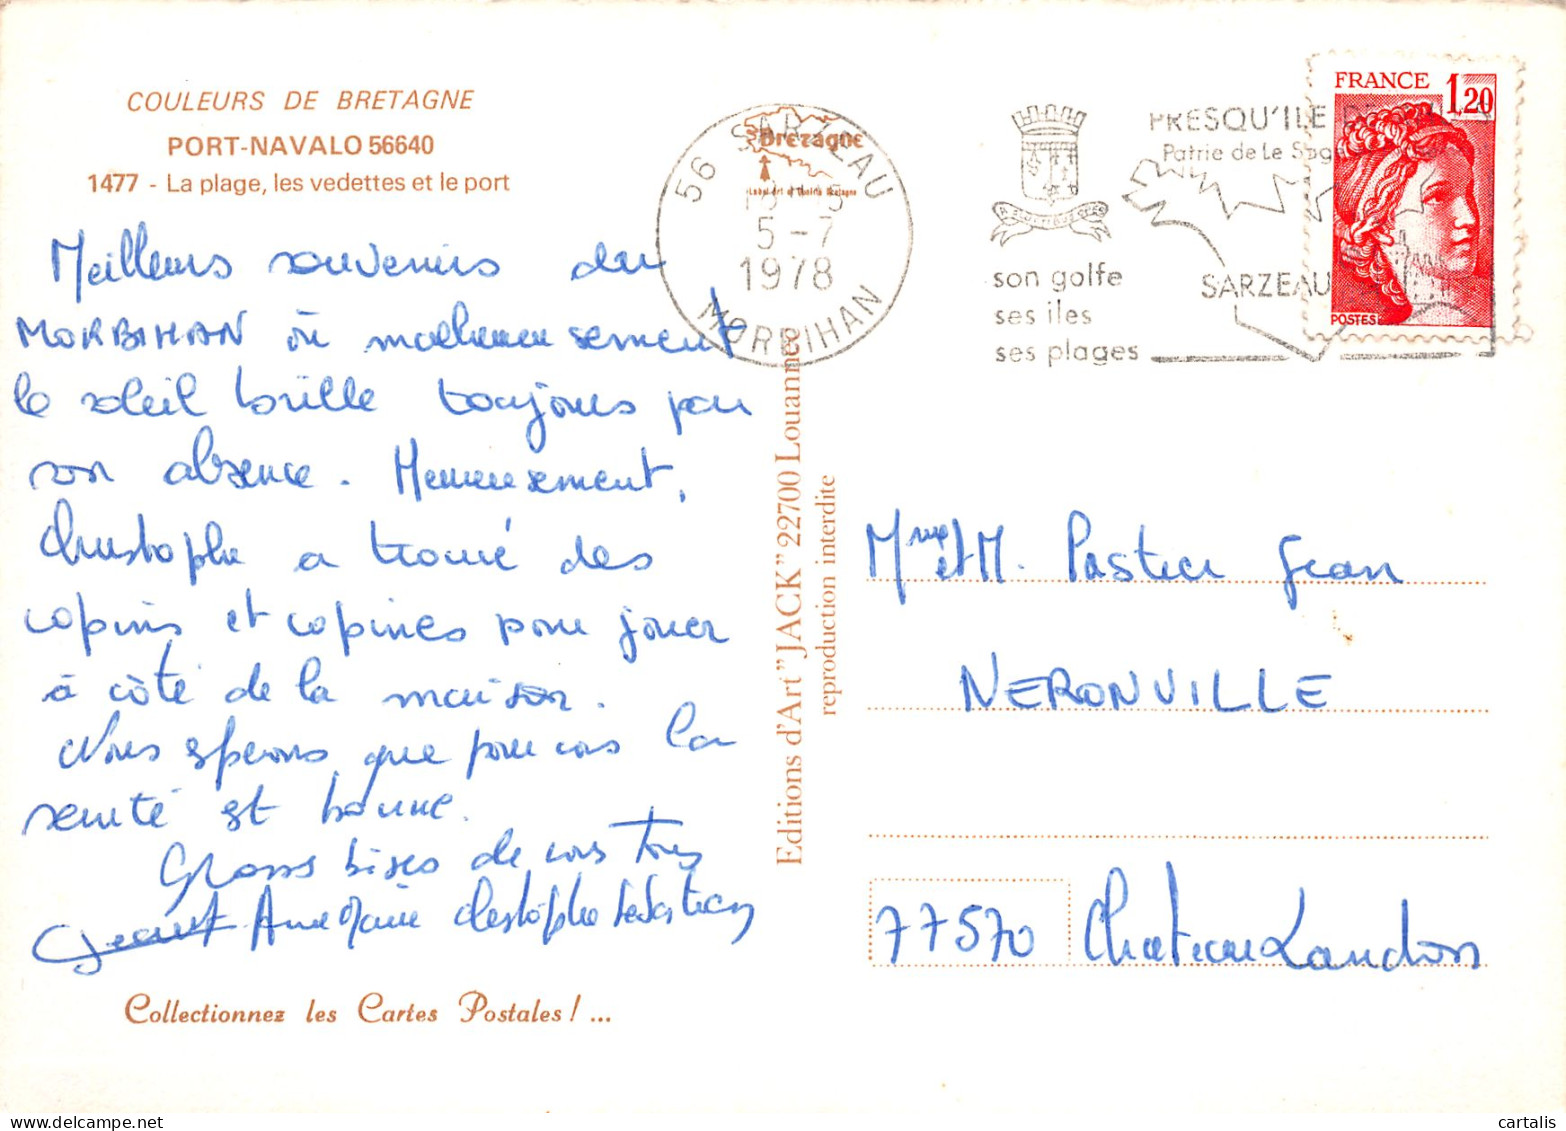 COULEURS DE BRETAGNE
PORT-NAVALO 56640
1477 - La plage, les vedettes et le port
Meilleurs souvenirs du
MORBIHAN où malheureusement
le soleil brille toujours par
son absence. Heureusement,
Christophe a trouvé des
copains et copines pour jouer
à côté de la maison.
Nous espérons que pour vous la
santé est bonne.
Grosses bises de vous tous
Anne Marie Christophe Sébastien
Collectionnez les Cartes Postales ! ...
Editions d'Art "JACK" 22700 Louannec
reproduction interdite
Bretagne
56 SARZEAU
5 - 7
1978
MORBIHAN
PRESQU'ILE
Patrie de Le Sage
son golfe
ses iles
ses plages
SARZEAU
FRANCE 1,20
POSTES
Mme et M. Pasteur Jean
NERONVILLE
77570 Chateau Landon